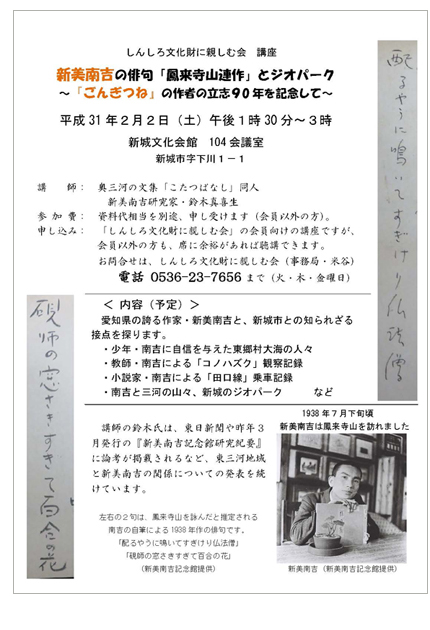 しんしろ文化財に親しむ会　講座
新美南吉の俳句「鳳来寺山連作」とジオパーク
～「ごんぎつね」の作者の立志９０年を記念して～
平成31年２月２日（土）午後１時30分～３時
新城文化会館　104会議室
新城市字下川１－１
講　　師：　奥三河の文集「こたつばなし」同人
新美南吉研究家・鈴木真喜生
参 加 費：　資料代相当を別途、申し受けます（会員以外の方）。
申し込み：　「しんしろ文化財に親しむ会」の会員向けの講座ですが、
会員以外の方も、席に余裕があれば聴講できます。
お問合せは、しんしろ文化財に親しむ会（事務局・米谷）
電話 0536-23-7656 まで（火・木・金曜日）
＜ 内容（予定）＞
愛知県の誇る作家・新美南吉と、新城市との知られざる
接点を探ります。
・少年・南吉に自信を与えた東郷村大海の人々
・教師・南吉による「コノハズク」観察記録
・小説家・南吉による「田口線」乗車記録
・南吉と三河の山々、新城のジオパーク　　など
講師の鈴木氏は、東日新聞や昨年３
月発行の『新美南吉記念館研究紀要』
に論考が掲載されるなど、東三河地域
と新美南吉の関係についての発表を続
けています。
左右の２句は、鳳来寺山を詠んだと推定される
南吉の自筆による1938年作の俳句です。
「配るやうに鳴いてすぎけり仏法僧」
「硯師の窓さきすぎて百合の花」
（新美南吉記念館提供）
1938年７月下旬頃
新美南吉は鳳来寺山を訪れました
新美南吉（新美南吉記念館提供）
配るやうに鳴いてすぎけり仏法僧
硯師の窓さきすぎて百合の花